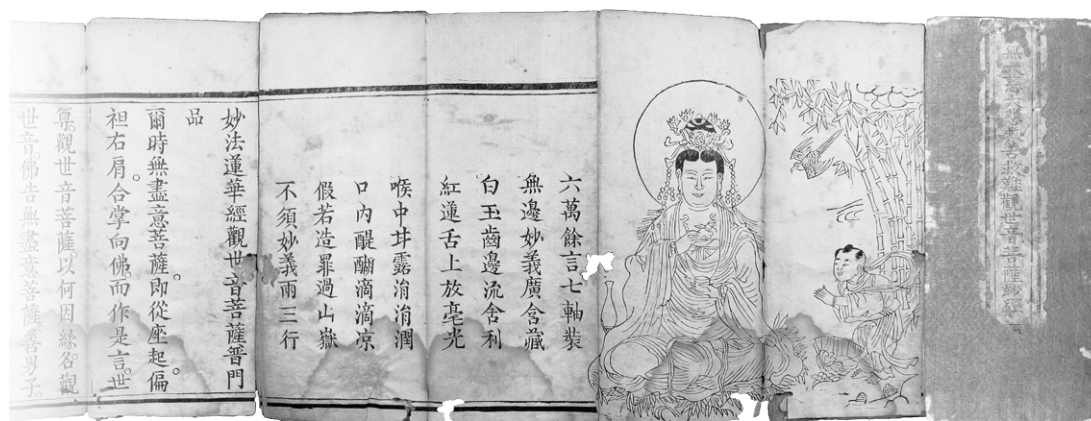 苦救難觀世音菩薩妙經
六萬餘言七軸裝
無邊妙義廣含藏
白玉齒邊流舍利
紅蓮舌上放毫光
喉中甘露涓涓潤
口內醍醐滴滴凉
假若造罪過山嶽
不須妙義兩三行
妙法蓮華經觀世音菩薩普門
品
爾時無盡意菩薩。即從座起。偏
袒右肩。合掌向佛。而作是言。世
尊。觀世音菩薩。以何因緣。名觀
世音。佛告無盡意菩薩。善男子。